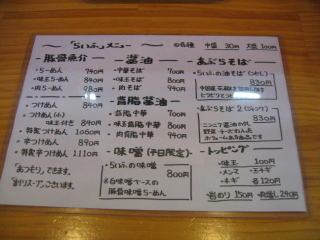 「らいふ」メニュー
◎各種 中盛 30円 大盛 100円
豚骨魚介
・らーめん 740円
・味玉らーめん 840円
・肉らーめん 980円
・つけめん 840円
・つけめん(小)
味玉付き 840円
・特製つけめん 1060円
・辛つけめん 890円
・特製辛つけめん 1110円
「あつもり」できます。
割りスープございます。
醤油
・中華そば 700円
・味玉中華 800円
・肉中華 940円
背脂醤油
・背脂中華 700円
・味玉背脂中華 800円
・肉背脂中華 940円
味噌(平日限定)
・らいふの味噌 800円
※白味噌ベースの
豚骨味噌らーめん
あぶらそば
・らいふの油そば
830円
・あぶらそば2
830円
ニンニク醤油のタレ
トッピング
・味玉 100円
・メンマ ・玉ネギ
・ネギ 各120円
・岩のり 150円 ・肉増し 240円